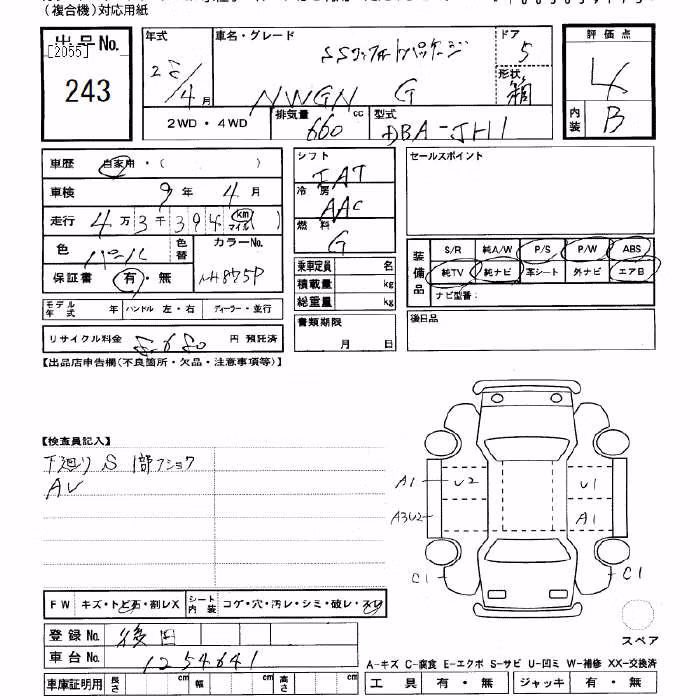 (複合機)対応用紙
出品No.
[2055]
243
年式
28/4月
車名・グレード
SSコンフォートパッケージ
NWGN G
ドア
5
形状
箱
評価点
4
内装
B
2WD・4WD
排気量
660 cc
型式
DBA-JH1
車歴 自家用・( )
車検 9年 4月
走行 4万3千394 km マイル( )
色 パール
色替
カラーNo.
NH875P
保証書 有・無
モデル年式 年 ハンドル 左・右 ディーラー・並行
リサイクル料金 円 預託済
シフト
IAT
冷房
AAC
燃料
G
乗車定員 名
積載量 kg
総重量 kg
書類期限
月 日
セールスポイント
装備品
S/R 純A/W P/S P/W ABS
純TV 純ナビ 革シート 外ナビ エアB
ナビ型番:
後日品
【出品店申告欄(不良箇所・欠品・注意事項等)】
【検査員記入】
下廻り S 1部フショク
AU
A1
U2
U1
A3U2
A1
C1
C1
スペア
FW キズ・トビ石・割レX
シート内装 コゲ・穴・汚レ・シミ・破レ・スレ
登録No. 後日
車台No. 1254641
車庫証明用 長さ cm 幅 cm 高さ cm
A-キズ C-腐食 E-エクボ S-サビ U-凹ミ W-補修 XX-交換済
工具 有・無 ジャッキ 有・無